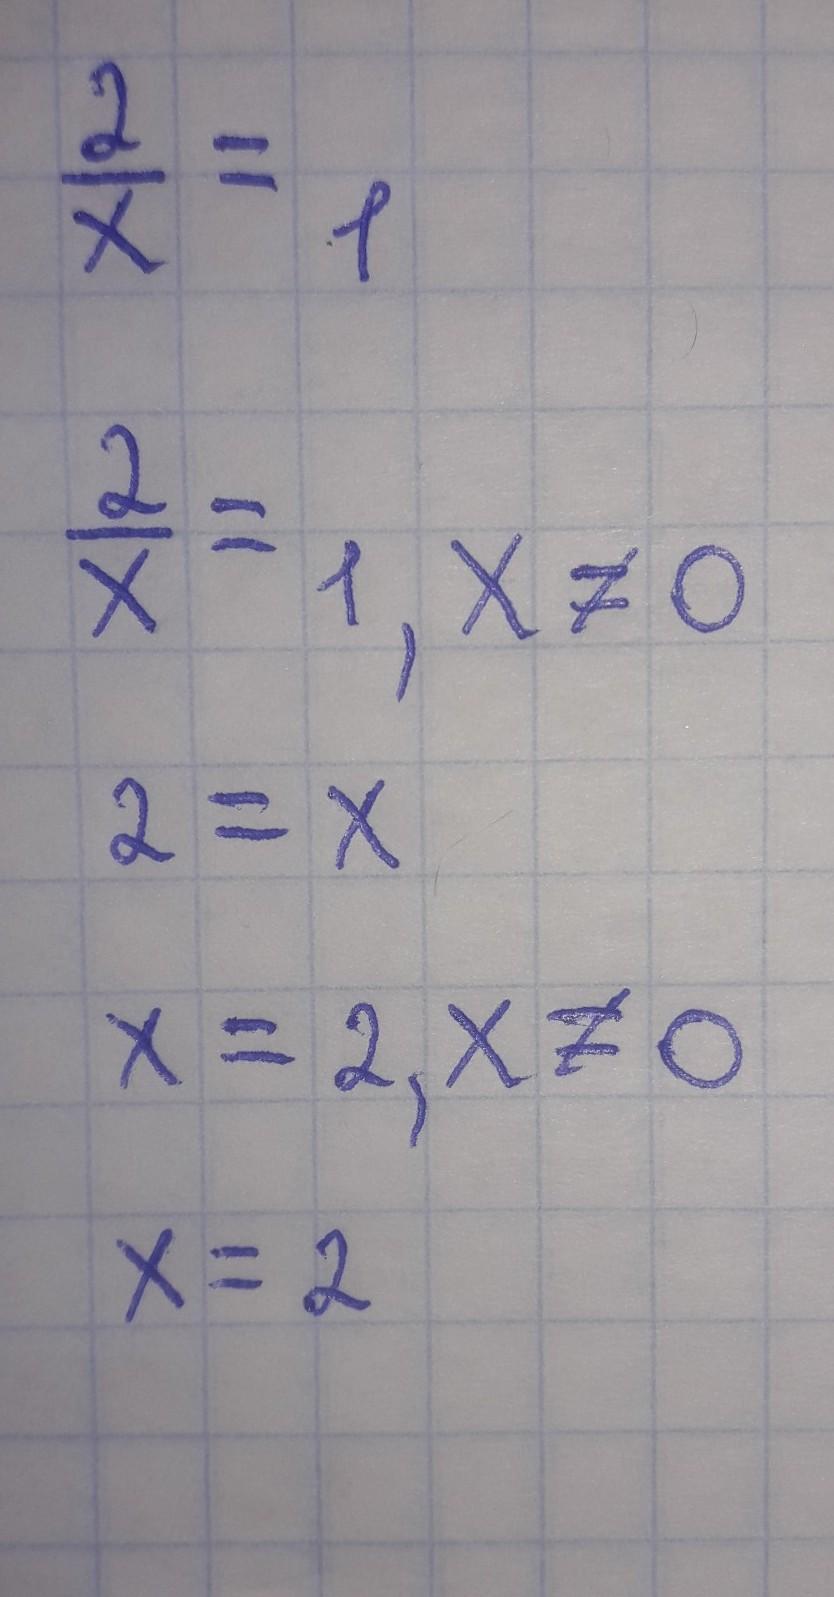 2/x = 1
2/x = 1, x ≠ 0
2 = x
x = 2, x ≠ 0
x = 2